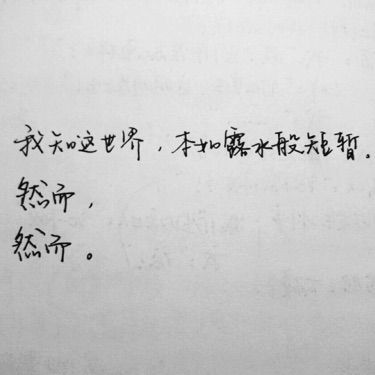 我知这世界，本如露水般短暂。
然而，
然而。